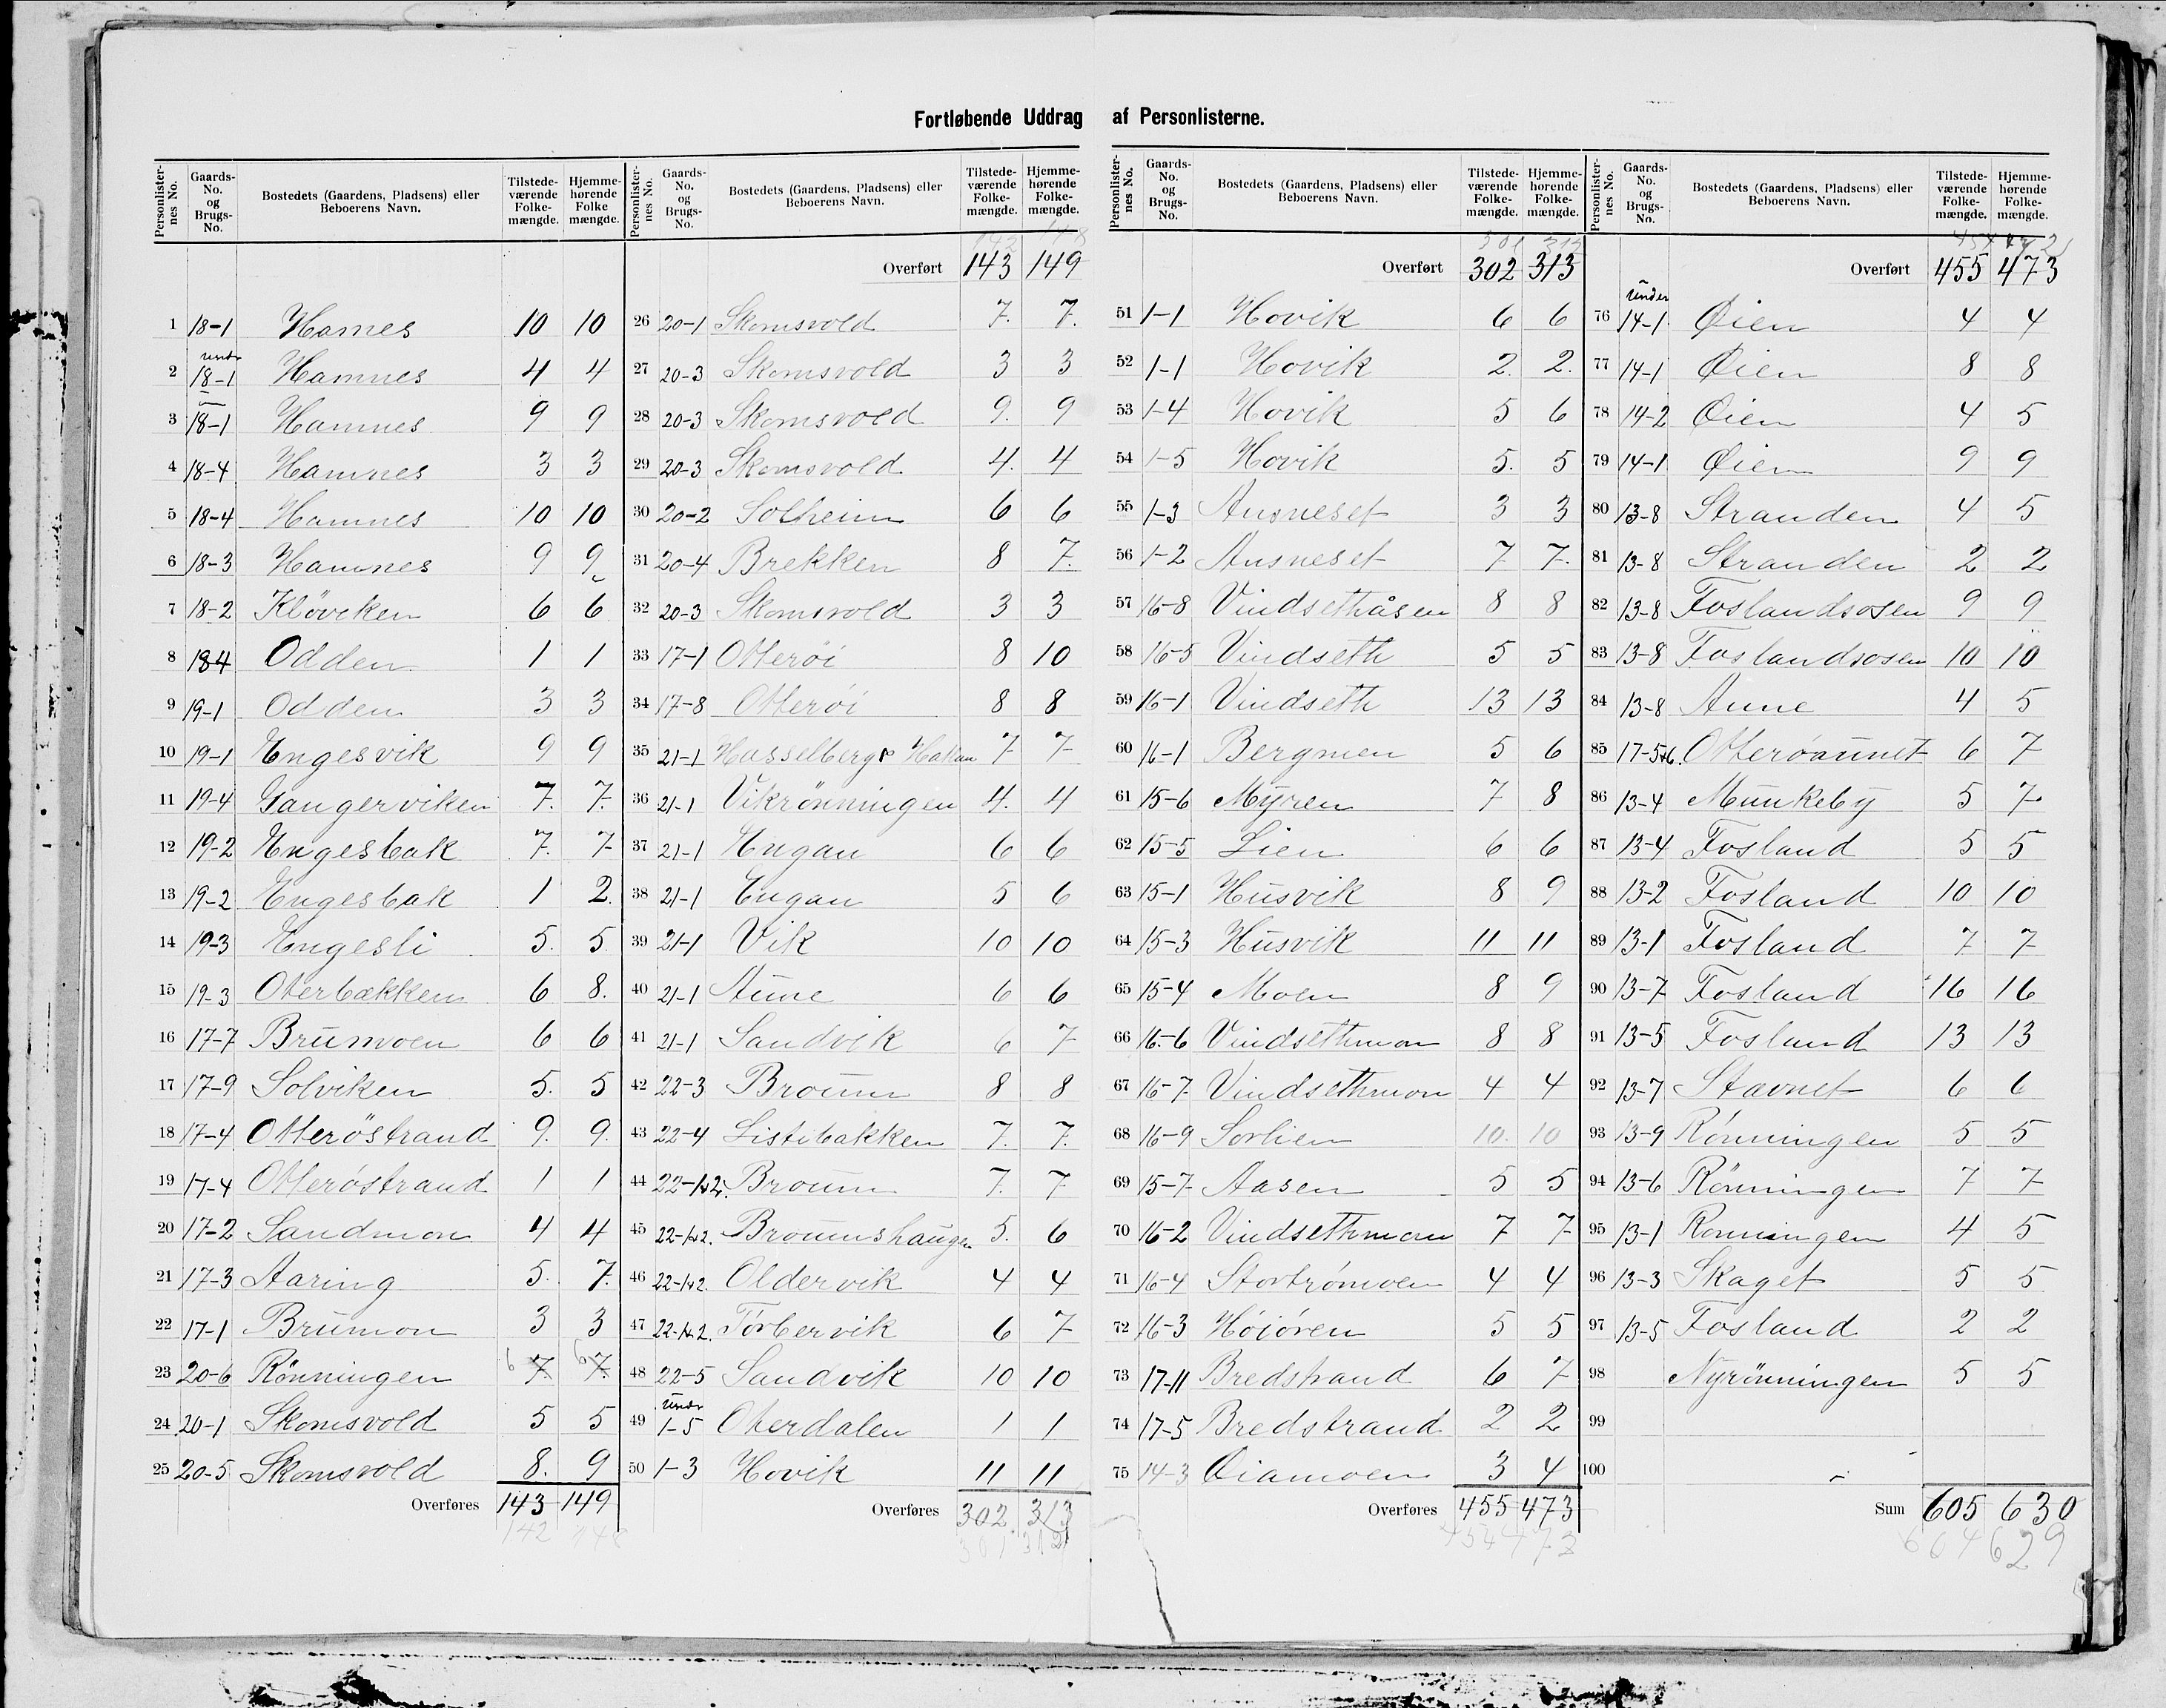 Fortløbende Uddrag af Personlisterne.
Personlisternes No. Gaards-No. og Brugs-No. Bostedets (Gaardens, Pladsens) eller Beboerens Navn. Tilstedeværende Folkemængde. Hjemmehørende Folkemængde.
1 18-1 Hamnes 10 10
2 under 18-1 Hamnes 4 4
3 18-1 Hamnes 9 9
4 18-4 Hamnes 3 3
5 18-4 Hamnes 10 10
6 18-3 Hamnes 9 9
7 18-2 Kløviken 6 6
8 18-4 Odden 1 1
9 19-1 Odden 3 3
10 19-1 Engesvik 9 9
11 19-4 Gangerviken 7. 7.
12 19-2 Engesbak 7. 7
13 19-2 Engesbak 1 2.
14 19-3 Engesli 5. 5
15 19-3 Oterbækken 6 8.
16 17-7 Brumoen 6 6
17 17-9 Solviken 5. 5
18 17-4 Otterøstrand 9. 9.
19 17-4 Otterøstrand 1 1
20 17-2 Sandmon 4 4
21 17-3 Aaring 5. 7.
22 17-1 Brumon 3 3
23 20-6 Rönningen 6 7 6 7
24 20-1 Skomsvold 5 5
25 20-5 Skomsvold 8. 9
Overføres 143 149
142 148
Personlisternes No. Gaards-No. og Brugs-No. Bostedets (Gaardens, Pladsens) eller Beboerens Navn. Tilstedeværende Folkemængde. Hjemmehørende Folkemængde.
142 148
Overført 143 149
26 20-1 Skomsvold 7. 7.
27 20-3 Skomsvold 3 3
28 20-3 Skomsvold 9. 9
29 20-3 Skomsvold 4. 4
30 20-2 Solheim 6 6
31 20-4 Brekken 8 7.
32 20-3 Skomsvold 3 3
33 17-1 Otterøi 8 10
34 17-8 Otterøi 8 8
35 21-1 Hasselberg 7 7
36 21-1 Vikrønningen 4. 4
37 21-1 Engan 6 6
38 21-1 Engan 5 6
39 21-1 Vik 10 10
40 21-1 Aune 6 6
41 21-1 Sandvik 6 7
42 22-3 Broum 8 8
43 22-4 Listibakken 7. 7.
44 22-1+2. Broum 7. 7
45 22-1+2. Broumshaugen 5. 6
46 22-1+2. Oldervik 4 4
47 22-1+2. Torbervik 6 7
48 22-5 Sandvik 10 10
49 under 1-5 Oterdalen 1 1
50 1-3 Hovik 11 11
Overføres 302. 313
301 312
Personlisternes No. Gaards-No. og Brugs-No. Bostedets (Gaardens, Pladsens) eller Beboerens Navn. Tilstedeværende Folkemængde. Hjemmehørende Folkemængde.
301 312
Overført 302 313
51 1-1 Hovik 6 6
52 1-1 Hovik 2. 2.
53 1-4 Hovik 5 6
54 1-5 Hovik 5. 5
55 1-3 Ausneset 3 3
56 1-2 Ausneset 7 7.
57 16-8 Vindsethåsen 8 8
58 16-5 Vindseth 5 5
59 16-1 Vindseth 13 13
60 16-1 Bergmen 5 6
61 15-6 Myren 7 8
62 15-5 Lien 6 6
63 15-1 Husvik 8 9
64 15-3 Husvik 11 11
65 15-4 Moen 8 9
66 16-6 Vindsethmon 8 8
67 16-7 Vindsethmon 4 4
68 16-9 Sorlien 10. 10
69 15-7 Aasen 5 5
70 16-2 Vindsethmon 7 7
71 16-4 Stortrømoen 4 4
72 16-3 Høiøren 5 5
73 17-11 Bredstrand 6 7
74 17-5 Bredstrand 2 2
75 14-3 Øiamoen 3 4
Overføres 455 473
454 472
Personlisternes No. Gaards-No. og Brugs-No. Bostedets (Gaardens, Pladsens) eller Beboerens Navn. Tilstedeværende Folkemængde. Hjemmehørende Folkemængde.
454 472
Overført 455 473
76 under 14-1 Øien 4 4
77 14-1 Øien 8 8
78 14-2 Øien 4 5
79 14-1 Øien 9 9
80 13-8 Stranden 4 5
81 13-8 Stranden 2 2
82 13-8 Foslandsosen 9 9
83 13-8 Foslandsosen 10 10
84 13-8 Aune 4 5
85 17-5+6. Otterøaunet 6 7
86 13-4 Munkeby 5 7
87 13-4 Fosland 5 5
88 13-2 Fosland 10 10
89 13-1 Fosland 7 7
90 13-7 Fosland 16 16
91 13-5 Fosland 13 13
92 13-7 Stavnet 6 6
93 13-9 Rønningen 5 5
94 13-6 Rönningen 7 7
95 13-1 Ronningen 4 5
96 13-3 Skaget 5 5
97 13-5 Fosland 2 2
98 Nyrönningen 5 5
99
100
Sum 605 630
604 629